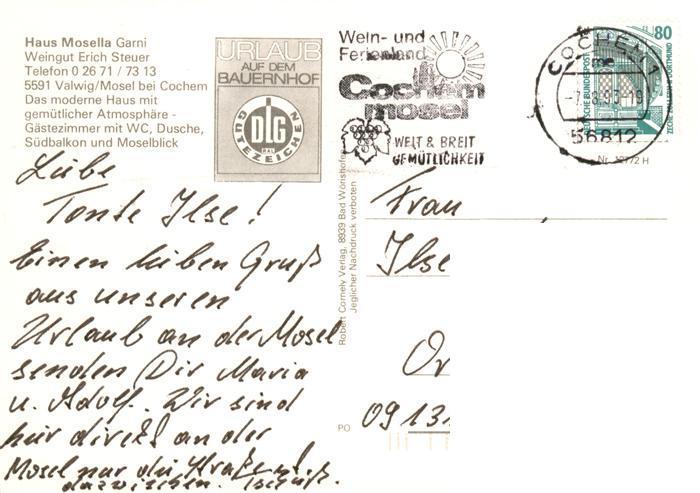 Haus Mosella Garni
Weingut Erich Steuer
Telefon 0 26 71 / 73 13
5591 Valwig/Mosel bei Cochem
Das moderne Haus mit
gemütlicher Atmosphäre -
Gästezimmer mit WC, Dusche,
Südbalkon und Moselblick
URLAUB
AUF DEM
BAUERNHOF
DLG
GÜTEZEICHEN
Wein- und
Ferienland
Cochem
mosel
WELT & BREIT
GEMÜTLICHKEIT
COCHEM
56812
80
DEUTSCHE BUNDESPOST
Robert Cornely Verlag, 8939 Bad Wörishofen
Jeglicher Nachdruck verboten
PO
Liebe
Tante Ilse!
Einen lieben Gruß
aus unseren
Urlaub an der Mosel
senden Dir Maria
u. Adolf. Wir sind
hier direkt an der
Mosel nur die Straße ist
dazwischen. Tschüß.
Frau
Ilse
0913